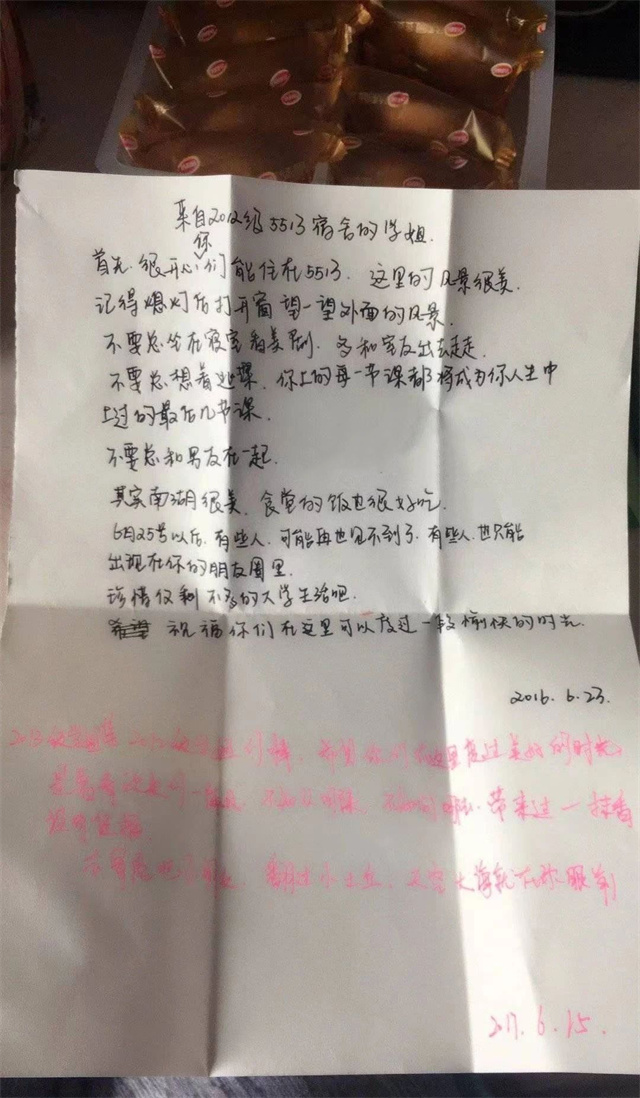 来自2012级5513宿舍的学姐.
首先.很开心你们能住在5513.这里的风景很美.
记得熄灯后打开窗望一望外面的风景.
不要总坐在寝室看美剧.多和室友出去走走.
不要总想着逃课.你上的每一节课都将成为你人生中
上过的最后几节课.
不要总和男友在一起.
其实南湖很美.食堂的饭也很好吃.
6月25号以后.有些人.可能再也见不到了.有些人.也只能
出现在你的朋友圈里.
珍惜仅剩不多的大学生活吧.
希望 祝福你们在这里可以度过一段愉快的时光.
2016.6.23.
希望你们在这里度过美好的时光
带来过一抹香
天空大海就在你眼前
2017.6.15.